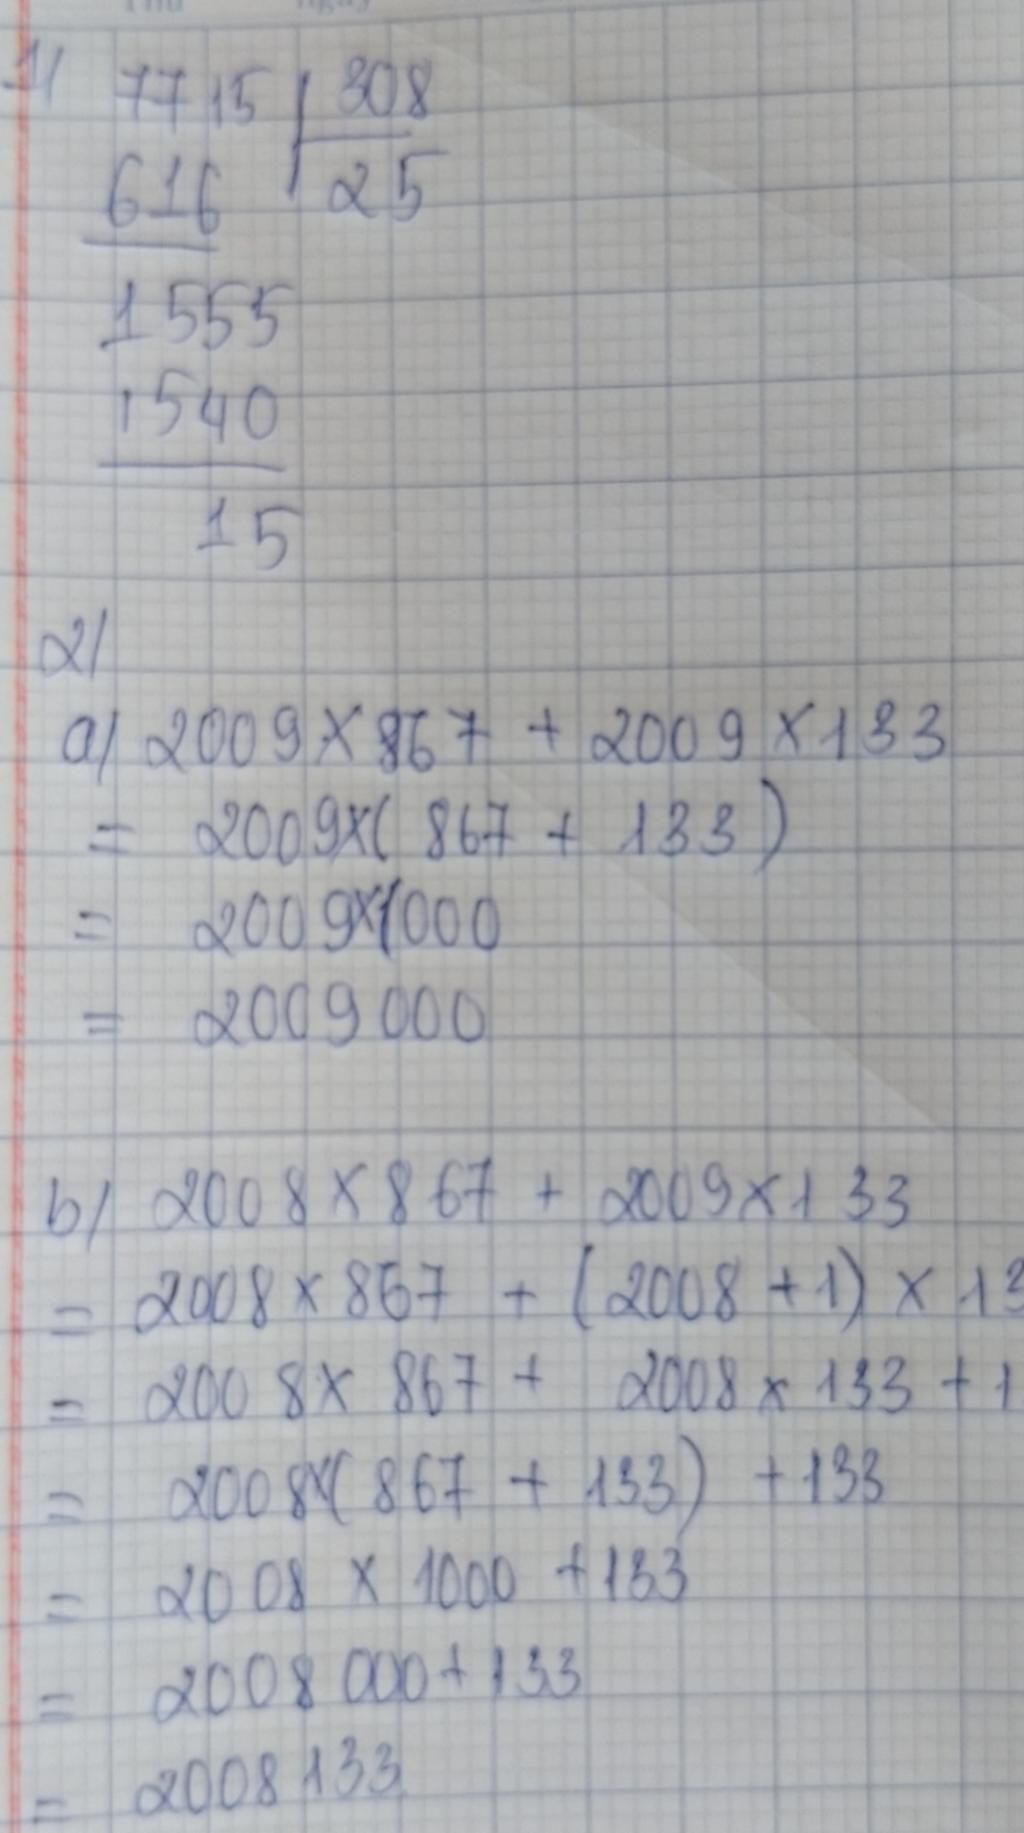 1/ 7715 | 308
616 25
1555
1540
15
2/
a/ 2009 x 867 + 2009 x 133
= 2009 x ( 867 + 133 )
= 2009 x 1000
= 2009 000
b/ 2008 x 867 + 2009 x 133
= 2008 x 867 + (2008 + 1) x 13
= 2008 x 867 + 2008 x 133 + 1
= 2008 x ( 867 + 133 ) + 133
= 2008 x 1000 + 133
= 2008 000 + 133
= 2008 133